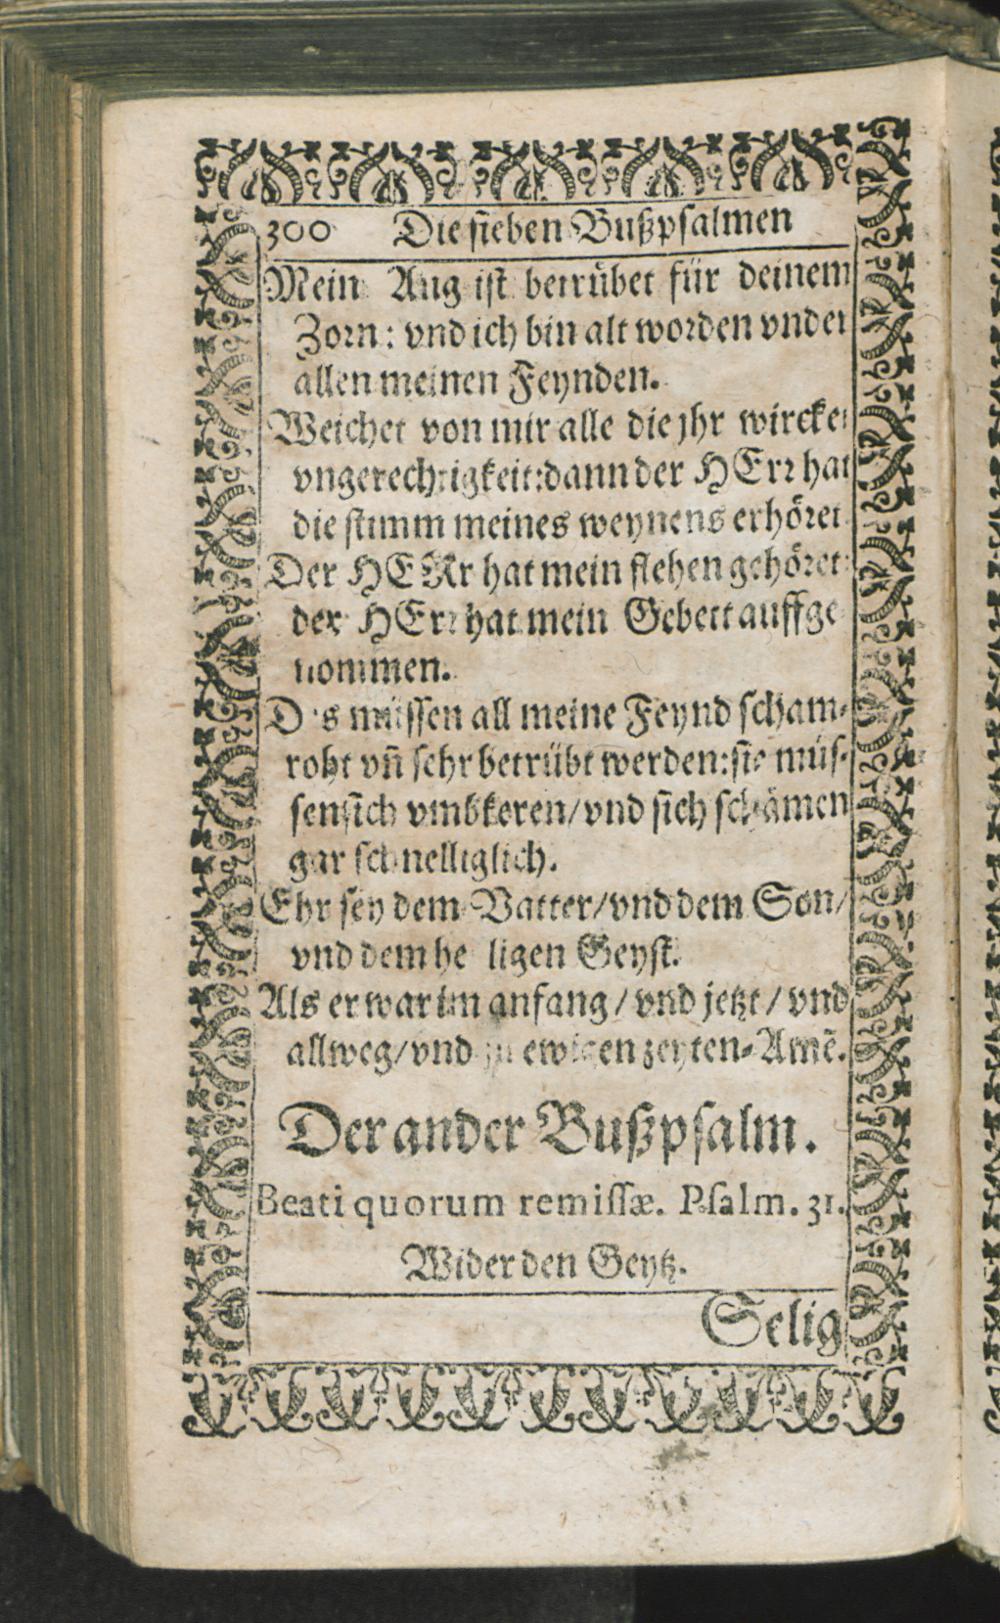 300 Die sieben Bußpsalmen
Mein Aug ist betrübet für deinem
Zorn: vnd ich bin alt worden vnder
allen meinen Feynden.
Weichet von mir alle die jhr wircket
vngerechtigkeit: dann der HErr hat
die stimm meines weynens erhöret
Der HERr hat mein flehen gehöret:
der HErr hat mein Gebett auffge
nommen.
müssen all meine Feynd scham-
roht vñ sehr betrübt werden: sie müs-
sen sich vmbkeren/ vnd sich schämen
gar schnelliglich.
Ehr sey dem Vatter/ vnd dem Son/
vnd dem he ligen Geyst.
Als er war im anfang/ vnd jetzt/ vnd
allweg/ vnd zu ewigen zeyten- Amẽ.
Der ander Bußpsalm.
Beati quorum remissæ. Psalm. 31.
Wider den Geytz.
Selig